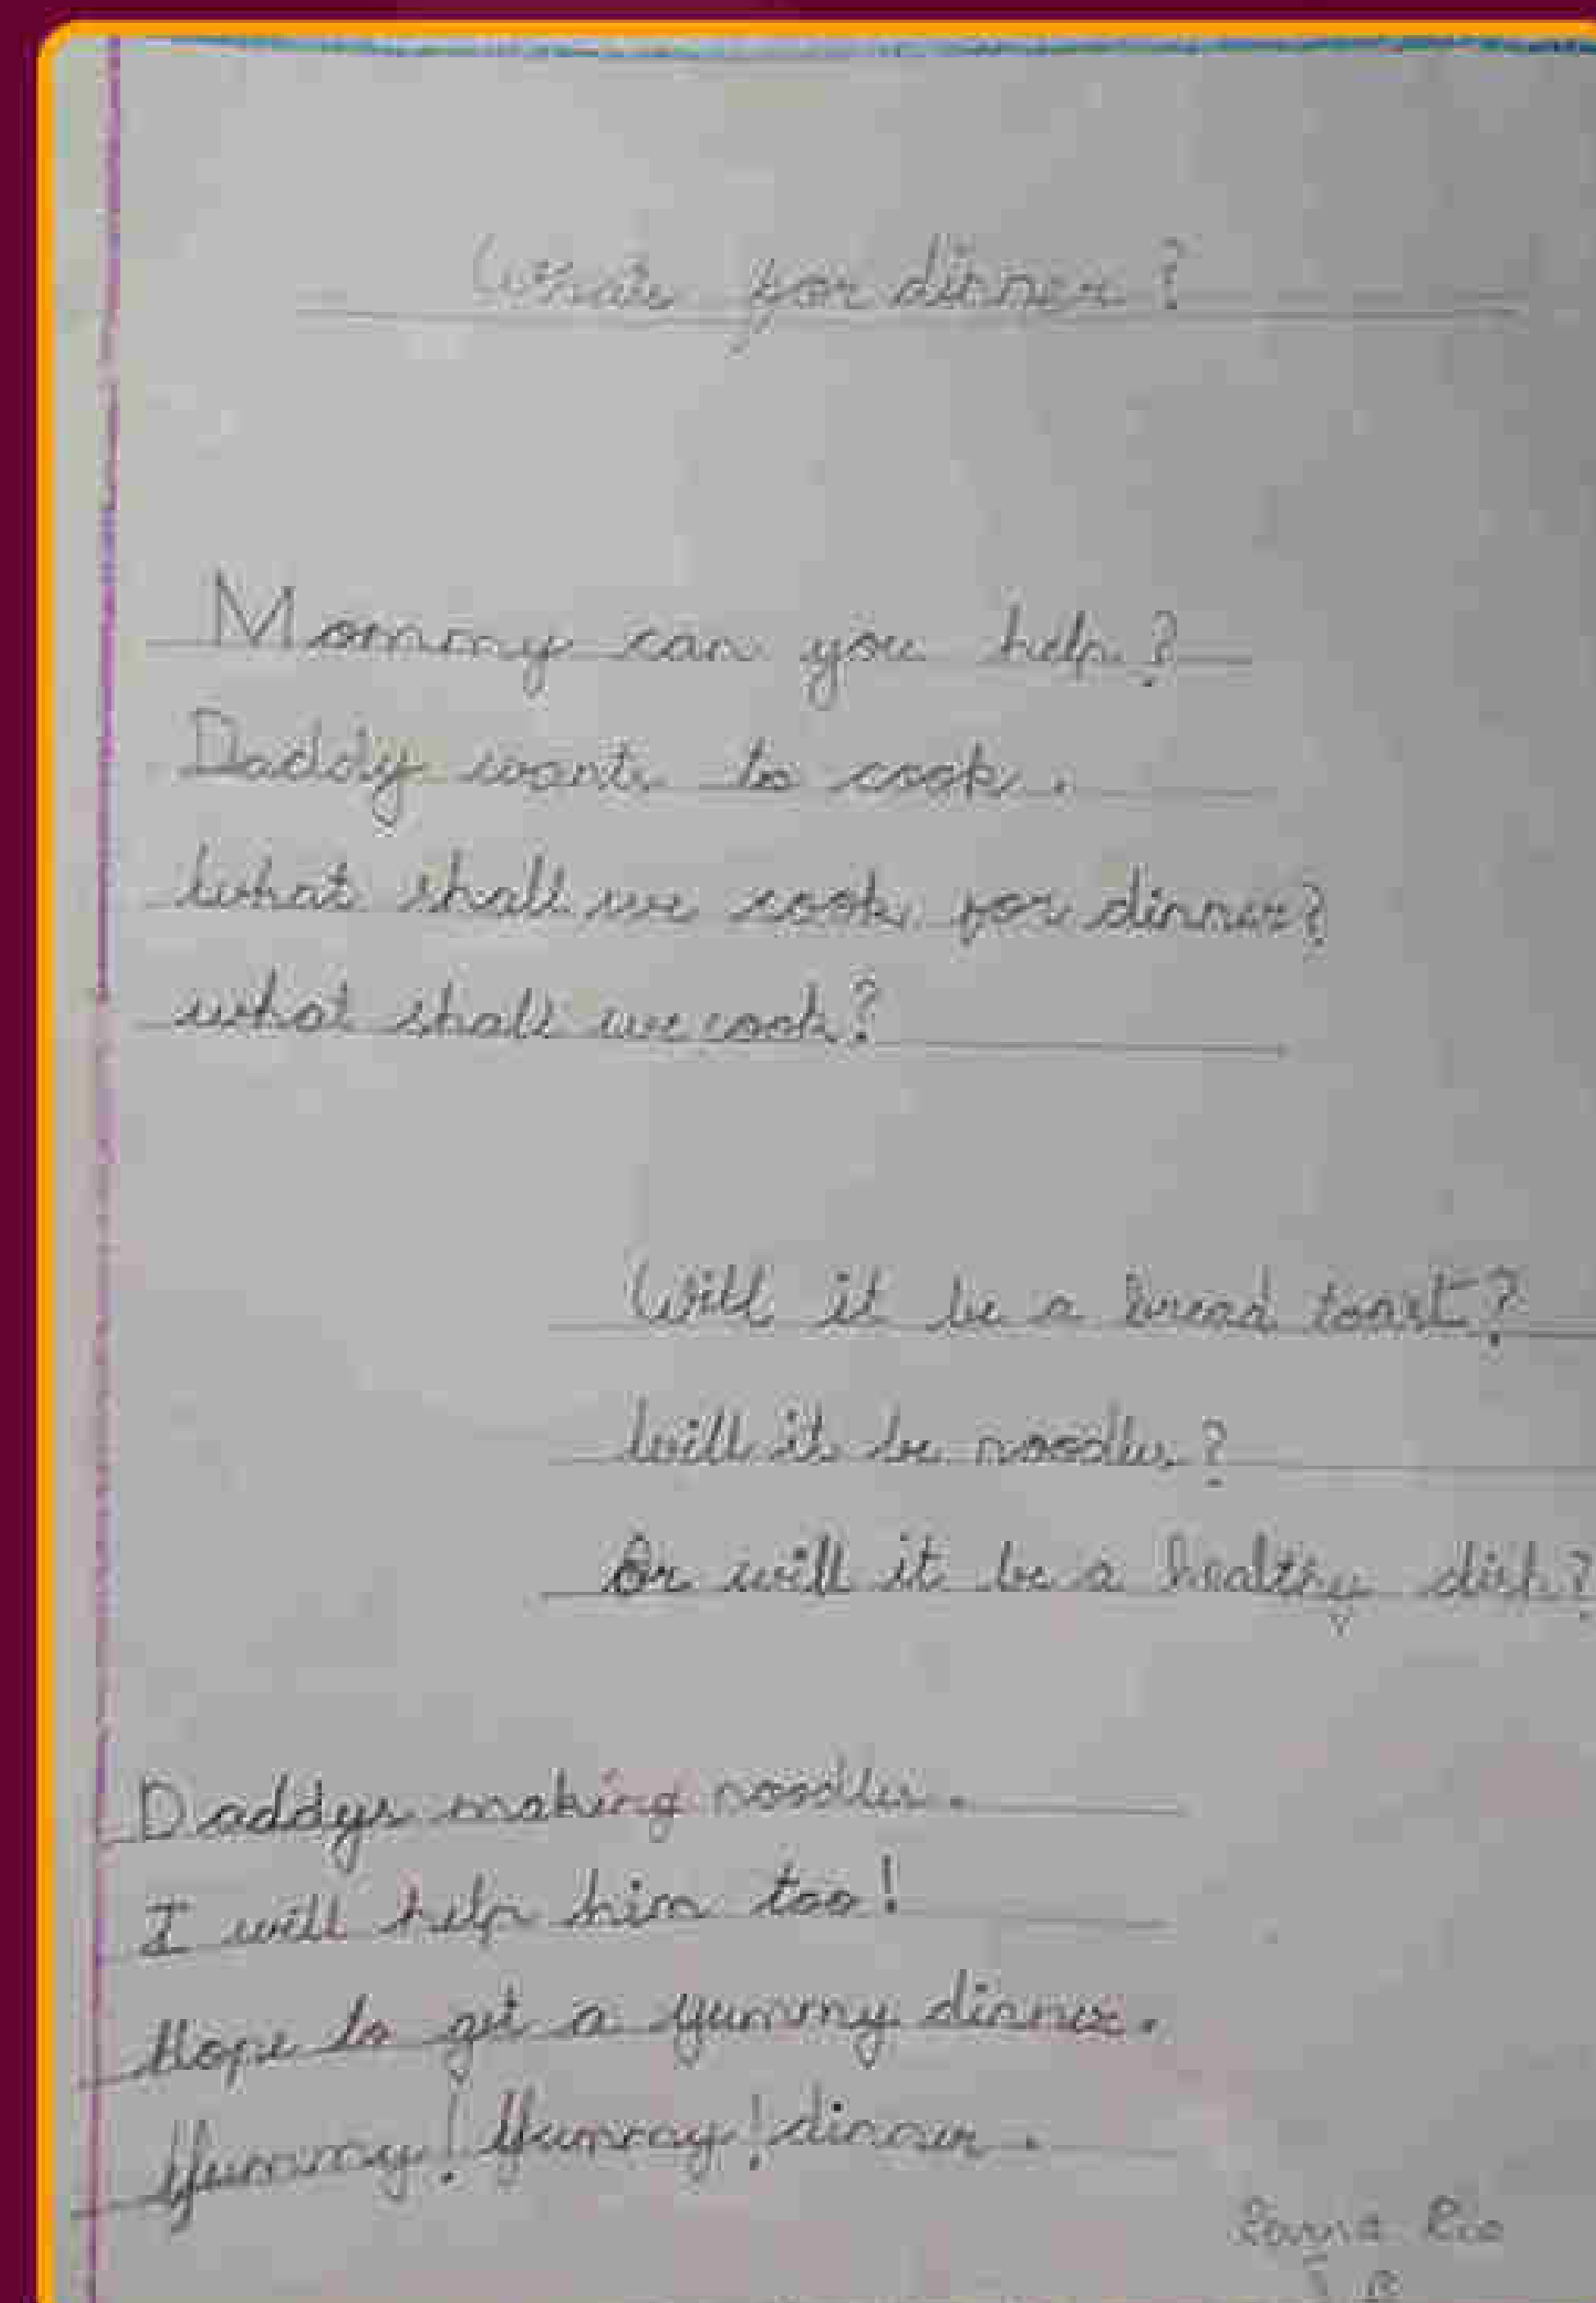 Whats for dinner?
Mommy can you help?
Daddy wants to cook.
What shall we cook for dinner?
what shall we cook?
Will it be a bread toast?
Will it be noodles?
Or will it be a healthy dish?
Daddys making noodles.
I will help him too!
Hope to get a yummy dinner.
Yummy! Yummy! dinner.